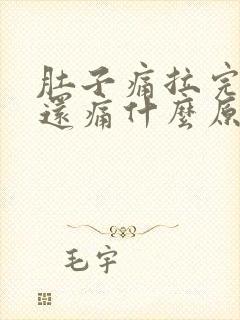 肚子痛拉完
還痛什麼原
毛宇